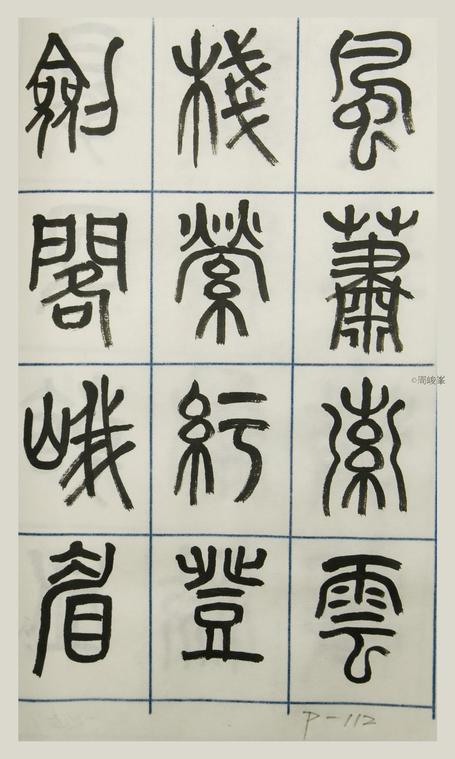 風蕭索雲
棧縈紆登
劍閣峨眉
©周峻峯
P-112